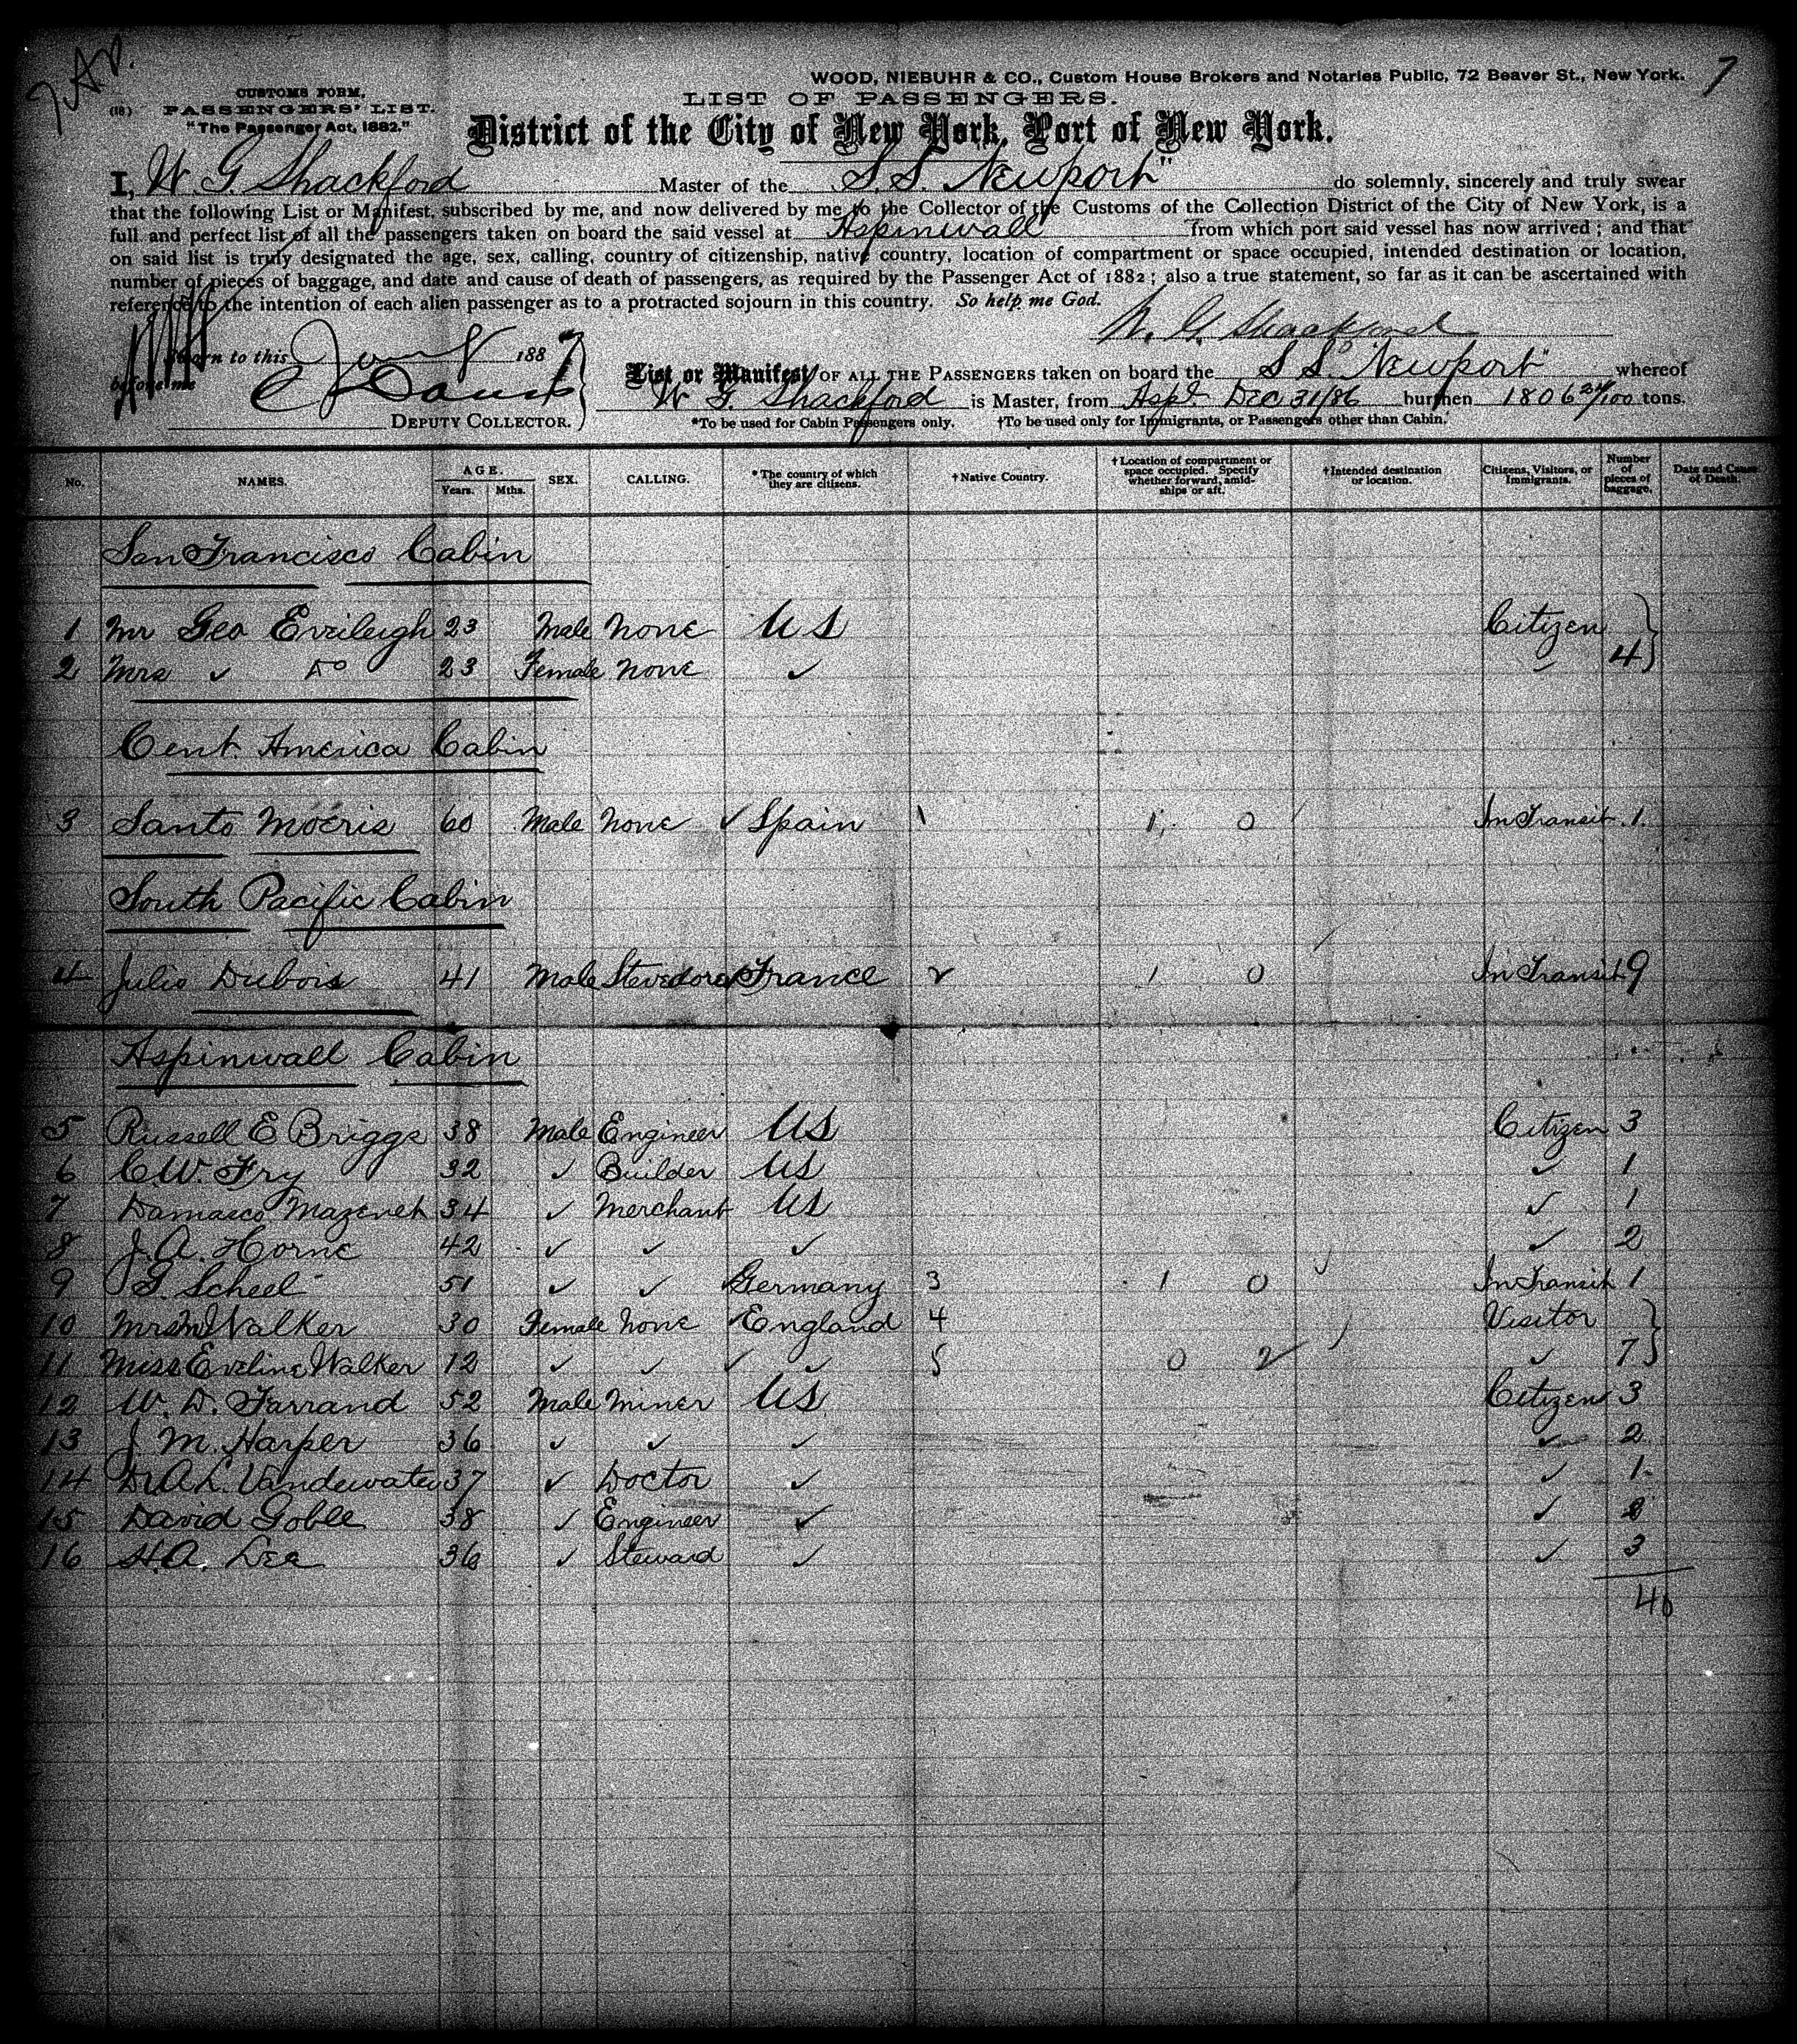 7
WOOD, NIEBUHR & CO., Custom House Brokers and Notaries Public, 72 Beaver St., New York.
CUSTOMS FORM.
LIST OF PASSENGERS.
(18) PASSENGERS' LIST.
"The Passenger Act, 1882."
District of the City of New York, Port of New York.
I, W. G Shackford Master of the S.S. Newport" do solemnly, sincerely and truly swear
that the following List or Manifest, subscribed by me, and now delivered by me to the Collector of the Customs of the Collection District of the City of New York, is a
full and perfect list of all the passengers taken on board the said vessel at Aspinwall from which port said vessel has now arrived; and that
on said list is truly designated the age, sex, calling, country of citizenship, native country, location of compartment or space occupied, intended destination or location,
number of pieces of baggage, and date and cause of death of passengers, as required by the Passenger Act of 1882; also a true statement, so far as it can be ascertained with
reference to the intention of each alien passenger as to a protracted sojourn in this country. So help me God.
W. G. Shackford
Sworn to this 188
before me
DEPUTY COLLECTOR.
List or Manifest OF ALL THE PASSENGERS taken on board the S S. "Newport" whereof
W G. Shackford is Master, from Aspl. Dec 31/86 burthen 1806 24/100 tons.
*To be used for Cabin Passengers only. †To be used only for Immigrants, or Passengers other than Cabin.
No. NAMES. AGE. Years. Mths. SEX. CALLING. *The country of which they are citizens. †Native Country. †Location of compartment or space occupied. Specify whether forward, amidships or aft. †Intended destination or location. Citizens, Visitors, or Immigrants. Number of pieces of baggage. Date and Cause of Death.
San Francisco Cabin
1 Mr Geo Eveileigh 23 Male None US Citizen
2 Mrs ✓ Do 23 Female None ✓ ✓ 4
Cent. America Cabin
3 Santo Mocris 60 Male None ✓ Spain 1 1 0 In Transit 1
South Pacific Cabin
4 Julio Dubois 41 Male Stevedore ✓ France 2 1 0 In Transit 9
Aspinwall Cabin
5 Russell E Briggs 38 Male Engineer US Citizen 3
6 C.W. Fry 32 ✓ Builder US ✓ 1
7 Damasco Mazenet 34 ✓ Merchant US ✓ 1
8 J. A. Horne 42 ✓ ✓ ✓ ✓ 2
9 G. Scheel 51 ✓ ✓ Germany 3 1 0 In Transit 1
10 Mrs M Walker 30 Female None England 4 Visitor
11 Miss Eveline Walker 12 ✓ ✓ ✓ ✓ 5 0 2 ✓ 7
12 W. D. Farrand 52 Male Miner US Citizen 3
13 J M. Harper 36 ✓ ✓ ✓ ✓ 2
14 Dr A L. Vandewater 37 ✓ Doctor ✓ ✓ 1
15 David Goble 38 ✓ Engineer ✓ ✓ 2
16 H.A. Lee 36 ✓ Steward ✓ ✓ 3
40